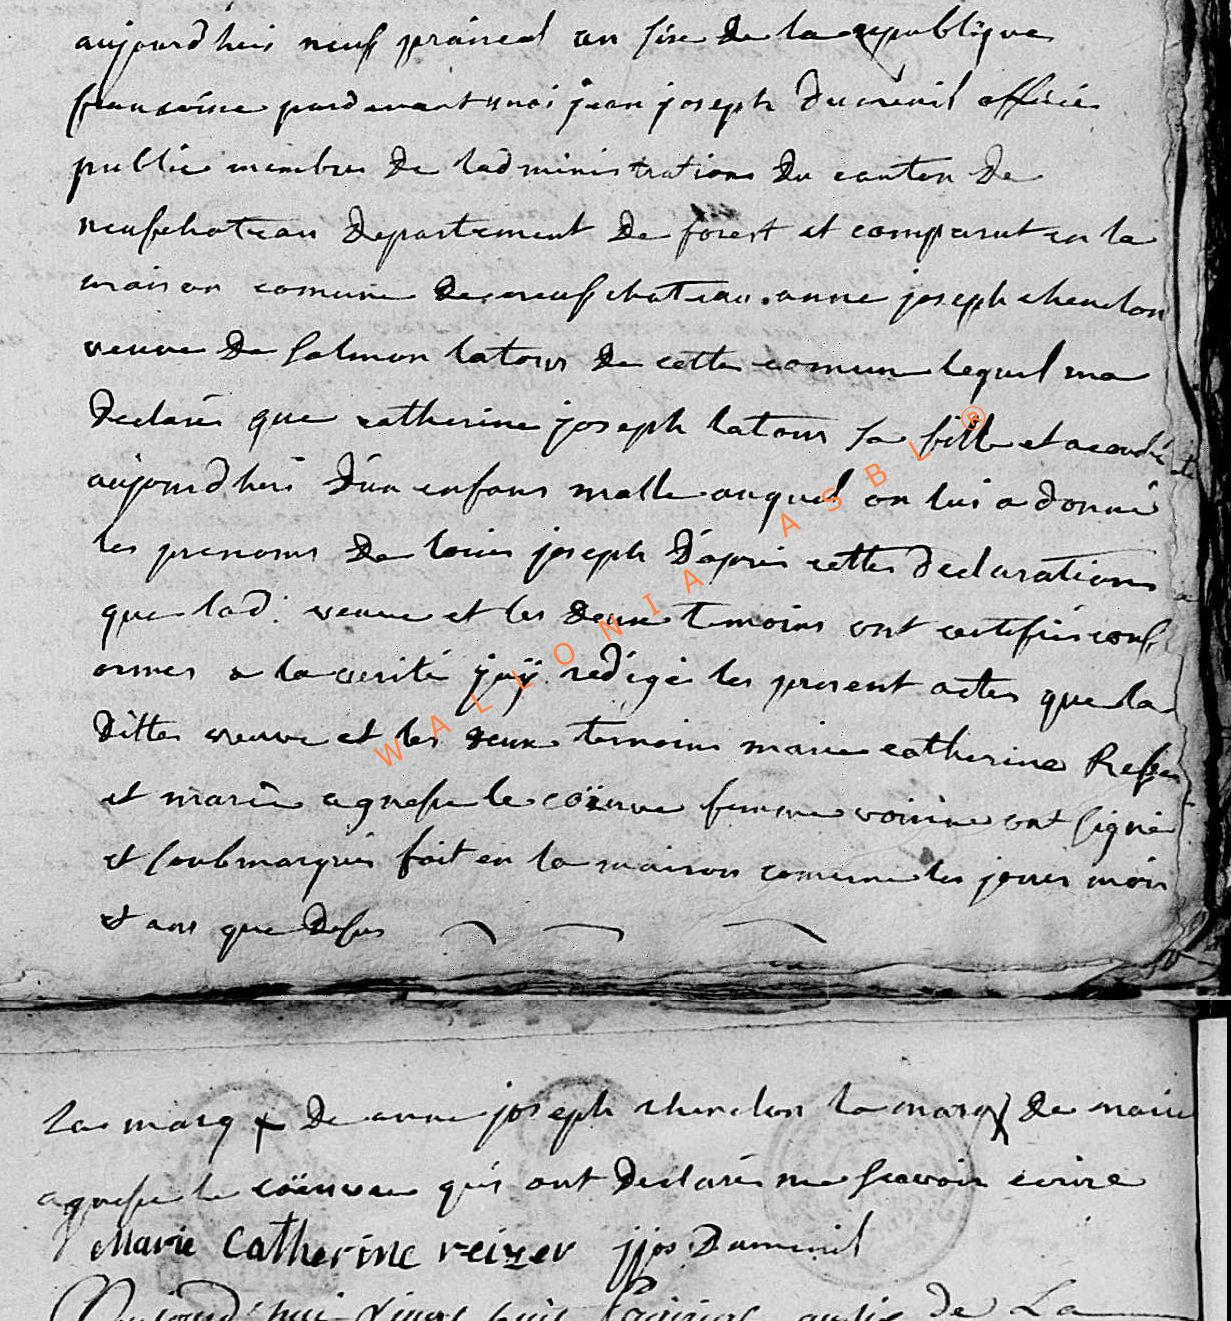 aujourdhuis neuf prairéal an sixe de la republique
francoise pardevant moi jean joseph Dumenil officié
public membre de ladministrations du canton de
neufchateau departement de forest et comparut en la
maison comune de neufchateau anne joseph chenclon
veuve de Salmon latour de cette comune lequel ma
declaré que catherine joseph latour sa fille et acouché
aujourdhuis d'un enfans malle auquel on lui a donné
les prenoms de louis joseph D'apres cette declarations
que lad: veuve et les deux temoins ont certifiés conf
ormes a la verité jaÿ redigé les present actes que la
ditte veuve et les deux temoins marie catherine
et marie agnesse le coëuvre femme voisine ont signé
et soubmarqués fait en la maison comune les jours mois
et ans que desus
la marq x de anne joseph chenclon la marq x de marie
agnesse le coëuvre qui ont declaré ne scavoir ecrire
Marie Catherine reizer jjos Dumenil
Aujourd'hui de La
WALLONIA ASBL ®